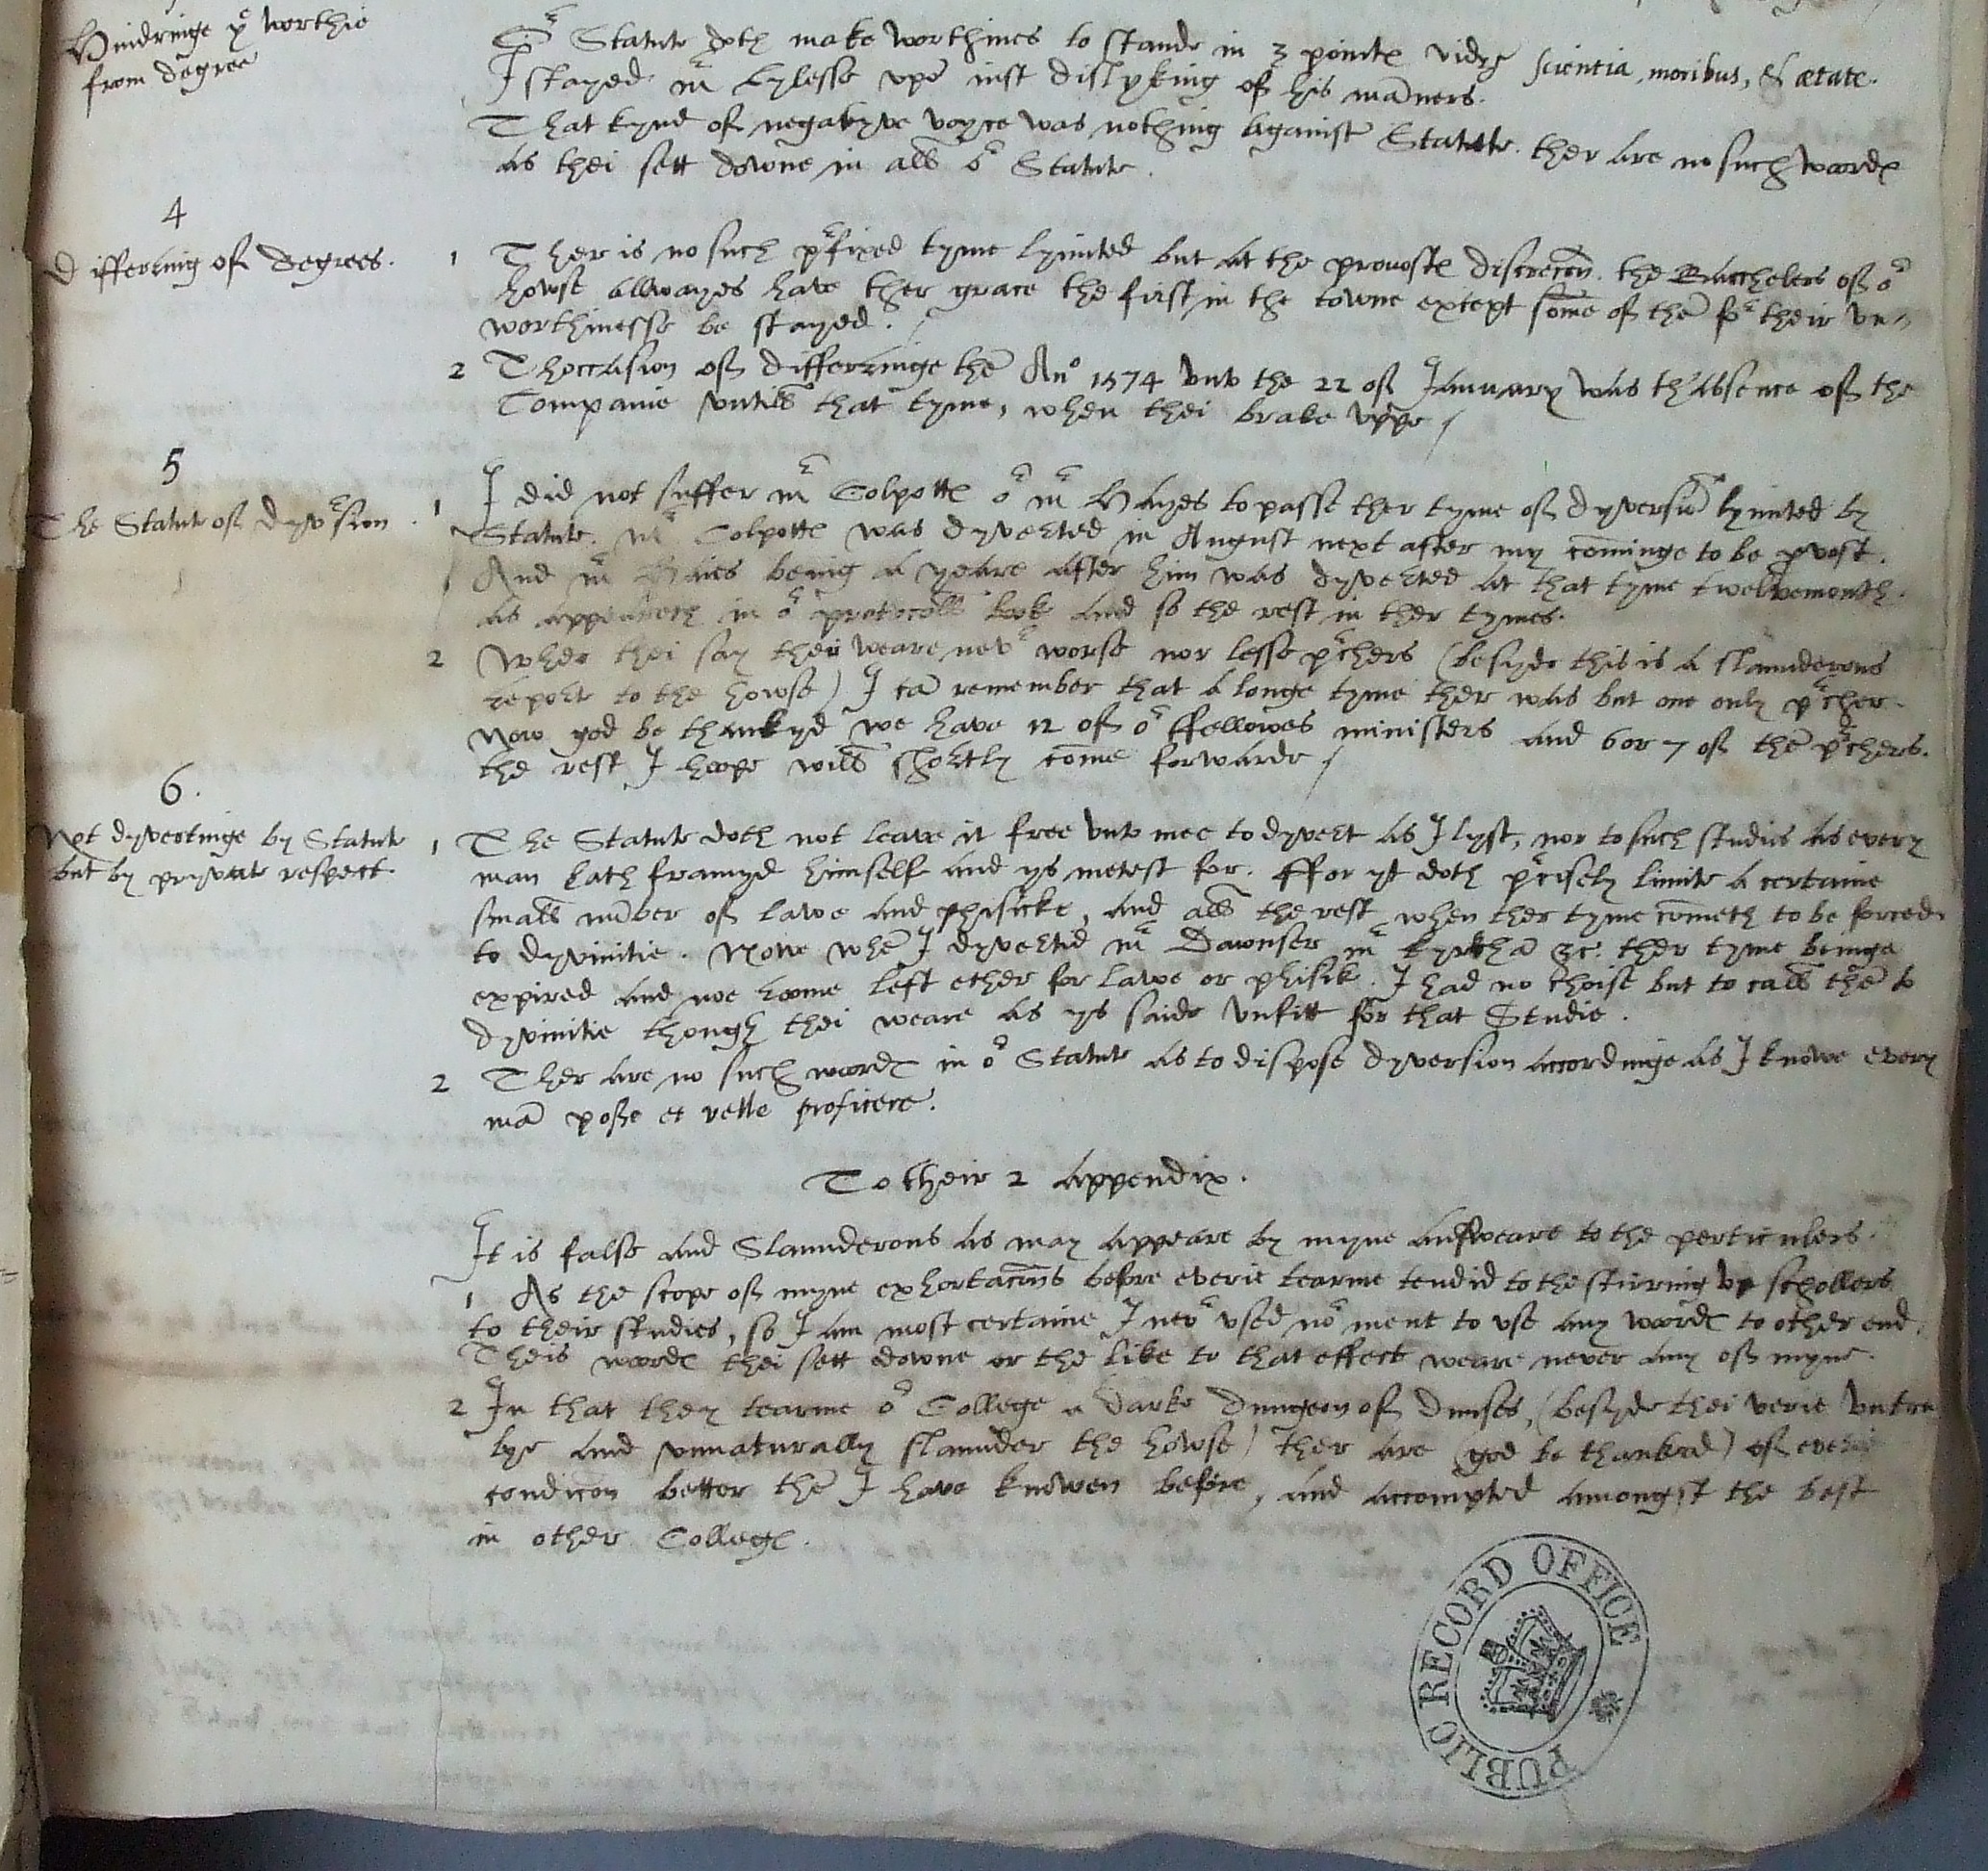 Hindringe yͤ worthie
from degree
Oͬ Statute doth make worthines to stande in 3 pointes vidz scientia, moribus, & ætate.
I stayed mͬ Lylesse vpō iust dislyking of his mañers.
That kynd of negatyve voyce was nothing against Statute. ther are no such wordes
as thei sett downe in all oͬ Statute.
4
Differring of degrees.
1 Ther is no such pͬfixed tyme lymited but at the provostes discrecon. the Bacchelers of oͬ
howse allwayes have ther grace the first in the towne except some of thē fͬ their vn=
worthinesse be stayed.
2 Thoccasion of differringe thē Anº 1574 vnto the 22 of January was th'absence of the
Companie vntill that tyme, when thei brake vppe /
5
The Statute of dyvͬsion.
1 I did not suffer mͬ Colpottes oͬ mͬ Hayes to passe ther tyme of dyversiō lymited by
Statute. mͬ Colpottes was dyverted in August next after my cominge to be pvost.
And mͬ Haies being a yeare after him was dyverted at that tyme twelvemonth.
as appeareth in oͬ protocoll book and so the rest in ther tymes.
2 Wher thei say ther weare nevͬ worse nor lesse pͬchers (besyde this is a slaunderous
report to the howse) I cā remember that a longe tyme ther was but one only pͬcher.
Now god be thankyd we have 12 of oͬ ffellowes ministers and 6 or 7 of thē pͬchers.
the rest I hoope will shortly come forwarde /
6.
Not dyvertinge by Statute
but by pryvate respect.
1 The Statute doth not leave it free vnto mee to dyvert as I lyst, nor to such studies as every
man hath framyd himself and ys metest for. ffor yt doth pͬcisely limite a certaine
small nūber of lawe and phisicke, and all the rest when ther tyme cometh to be forced
to dyvinitie. Nowe whē I dyvertid mͬ Dawnser mͬ Kyrkhā &c. ther tyme beinge
expired and noe roome left ether for lawe or phisik. I had no choise but to call thē to
dyvinitie though thei weare as ys saide vnfitt for that Studie.
2 Ther are no such wordes in oͬ Statute as to dispose dyversion accordinge as I knowe every
mā posse et velle proficere.
To their 2 Appendix.
It is false and Slaunderous as may appeare by myne answeare to the perticulers.
1 As the scope of myne exhortacons before everie tearme tendid to the stirring vp schollers
to their studies, so I am most certaine I nevͬ vsed noͬ ment to vse any wordes to other end.
Theis wordes thei sett downe or the like to that effect weare never any of myne.
2 In that they tearme oͬ College a darke Dungeon of Dunses, (besyde thei verie vntru
lye and vnnaturally slaunder the howse) ther are (god be thanked) of everie
condicon better thē I have knowen before, and accompted amongst the best
in other Colleges.
PUBLIC RECORD OFFICE